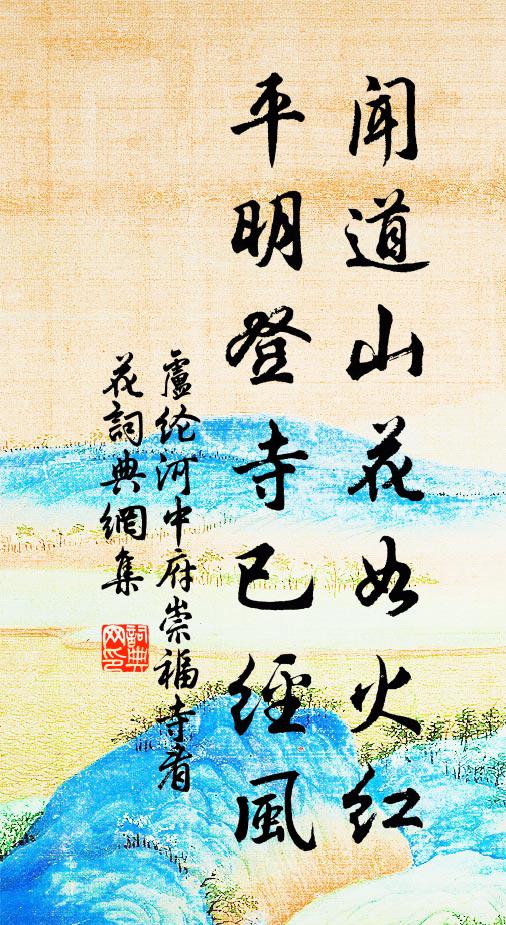 闻道山花如火红
平明登寺已經風
盧纶河中府崇福寺看
花詞典網集
詞典
网印